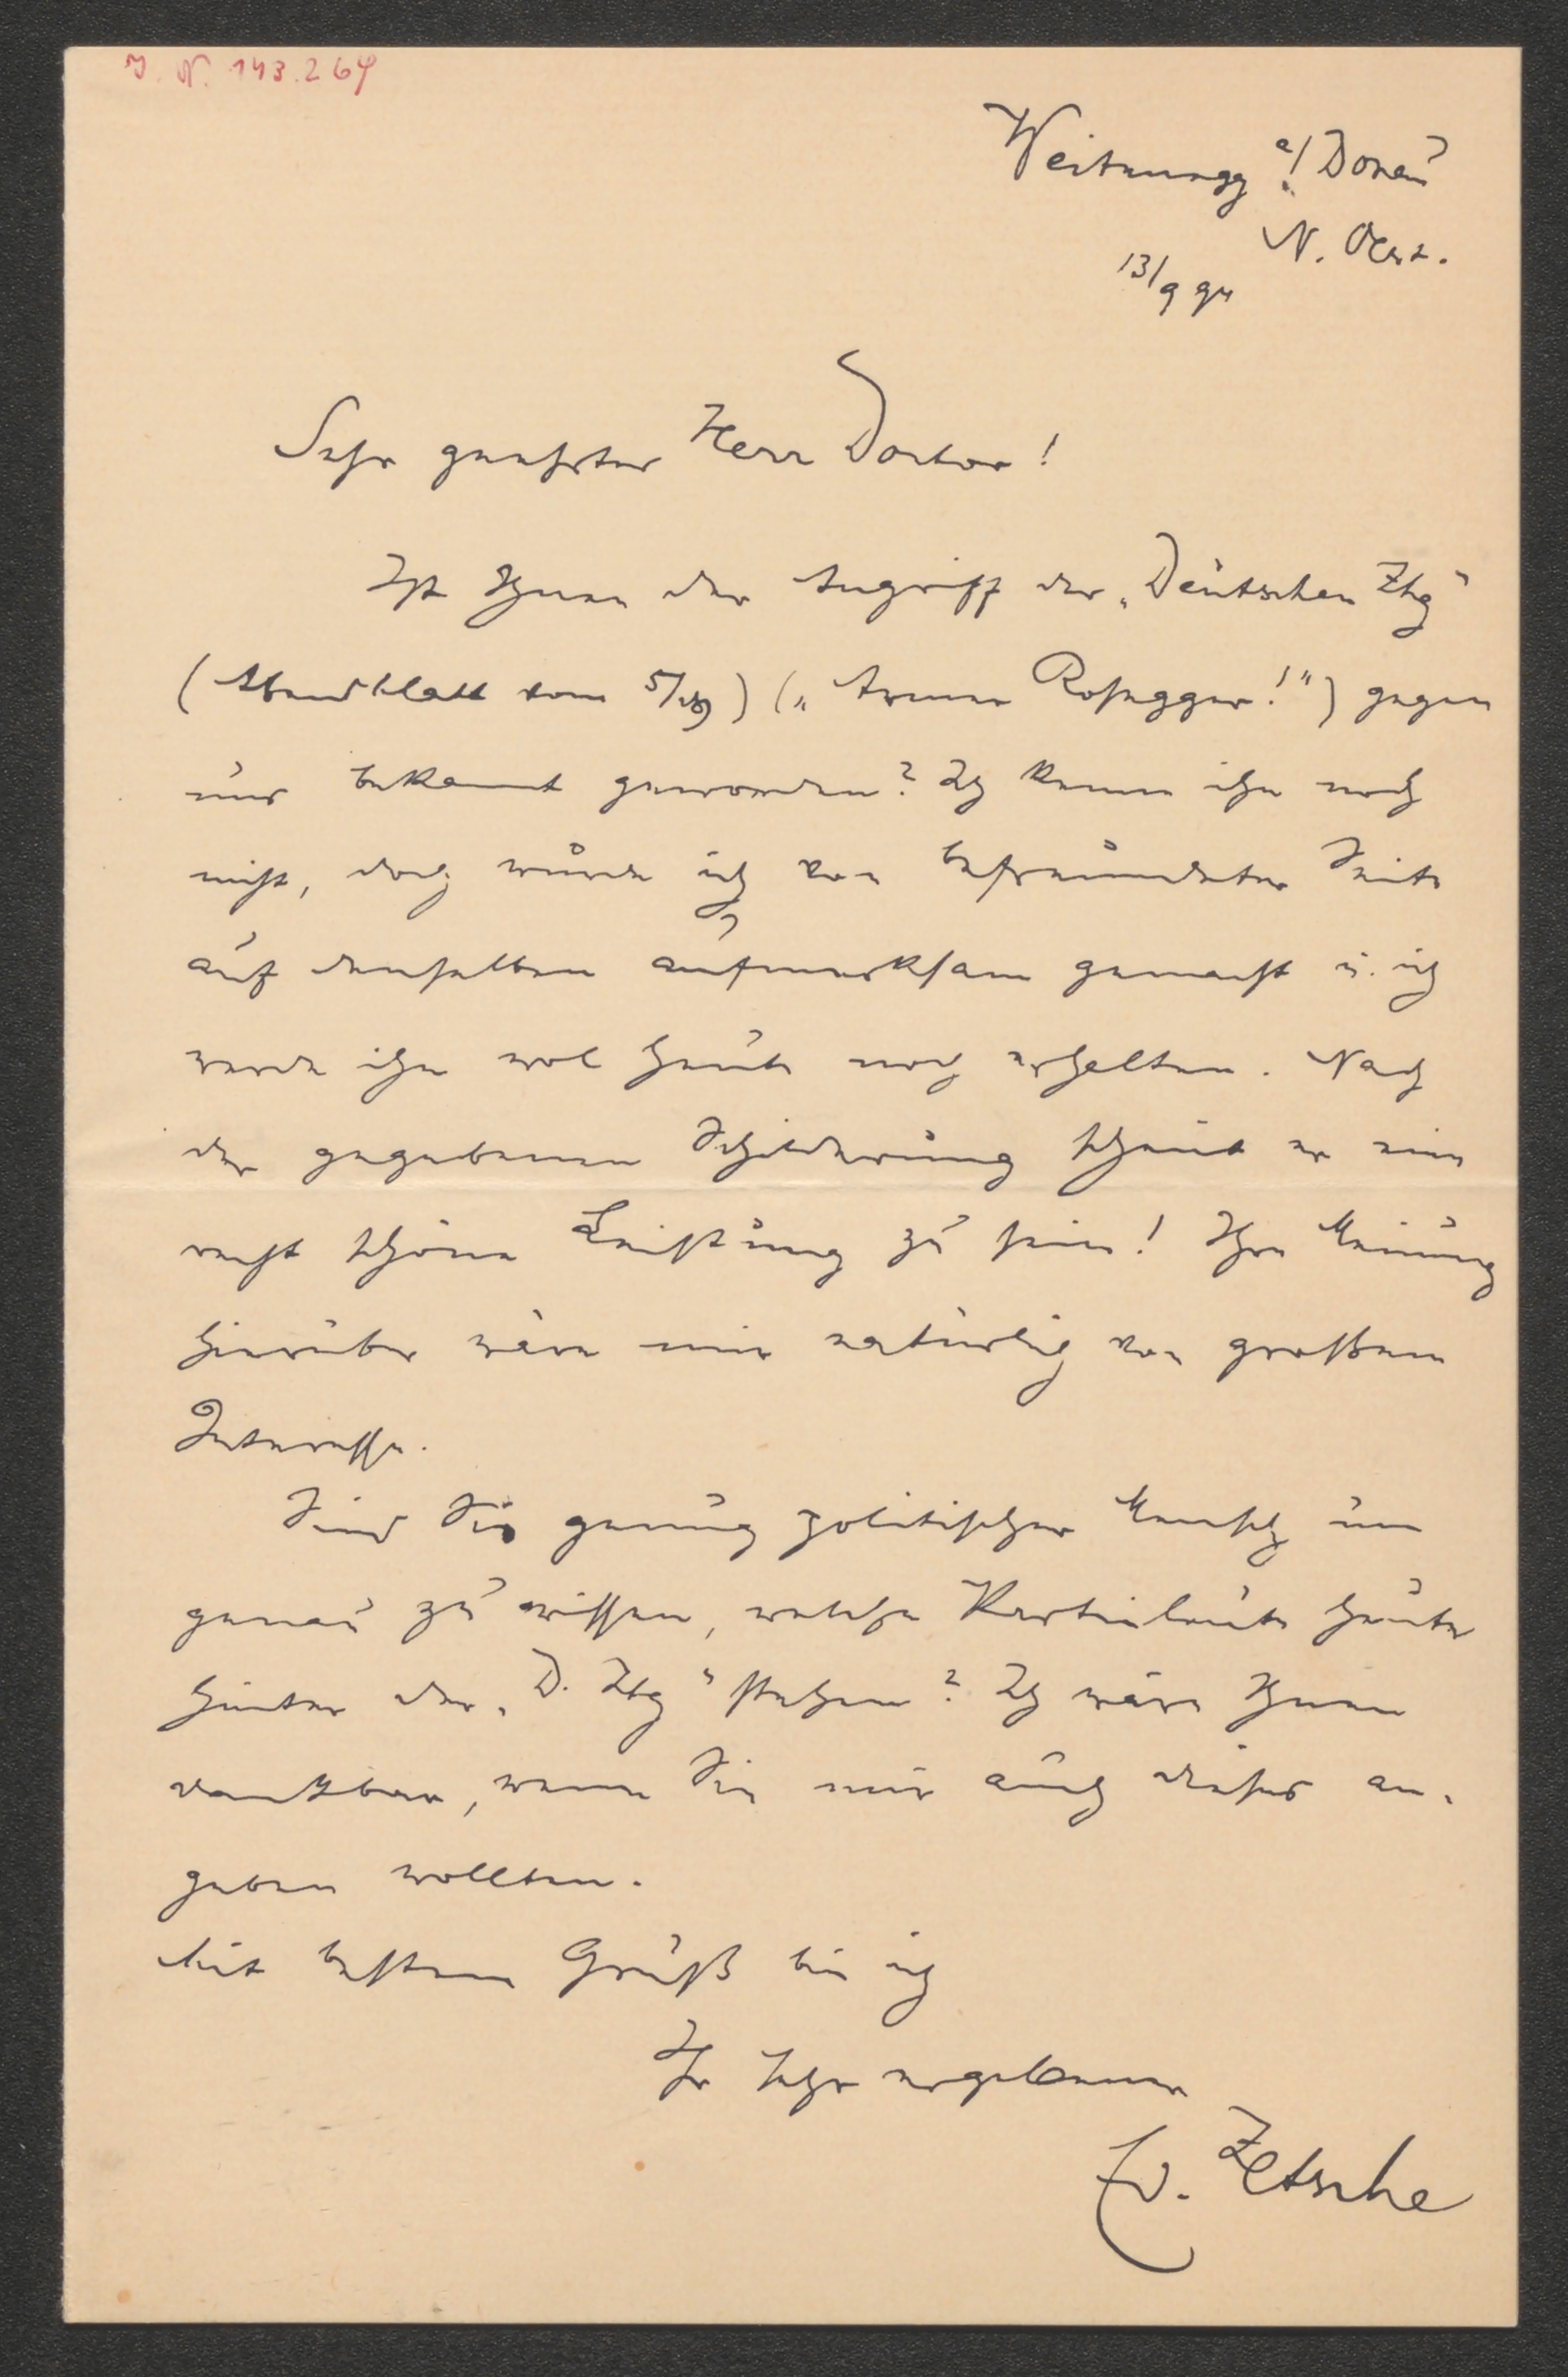 J. N. 143.264
Weitenegg a/ Donau
N. Oest.
13/9 94
Sehr geehrter Herr Doctor!
Ist Ihnen der Angriff der „Deutschen Ztg"
(Abendblatt vom 5/9) („Armer Rosegger!") gegen
mir bekannt geworden? Ich kenne ihn noch
nicht, doch wurde ich von befreundeter Seite
auf denselben aufmerksam gemacht u. ich
werde ihn wol heute noch erhalten. Nach
der gegebenen Schilderung scheint er eine
recht schöne Leistung zu sein! Ihre Meinung
hierüber wäre mir natürlich von großem
Interesse.
Sind Sie genug politischer Mensch um
genau zu wissen, welche Parteileute heute
hinter der „D. Ztg" stehen? Ich wäre Ihnen
dankbar, wenn Sie mir auch dieses an-
geben wollten.
Mit bestem Gruß bin ich
Ihr sehr ergebener
Ed. Zetsche